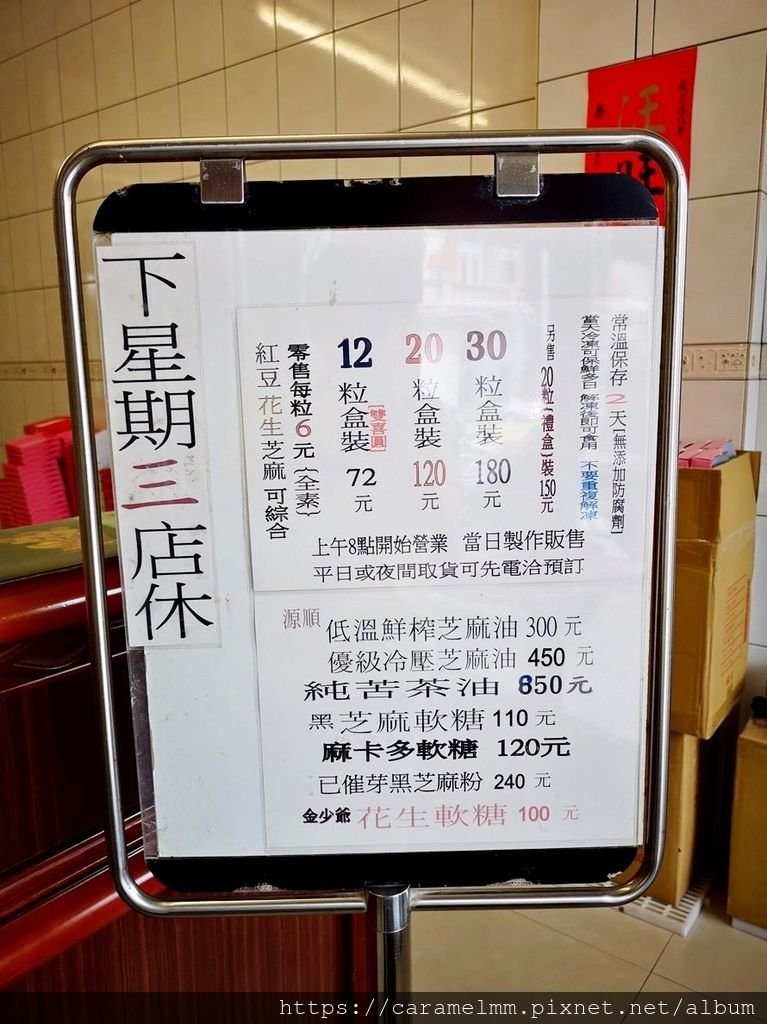 下星期三店休
常溫保存 2 天[無添加防腐劑]
當天冷凍可保鮮多日 解凍後即可食用 不要重複解凍
另售 20粒[禮盒]裝 150元
30粒盒裝 180元
20粒盒裝 120元
12粒盒裝[雙喜圓] 72元
零售每粒6元(全素)
紅豆花生芝麻可綜合
上午8點開始營業 當日製作販售
平日或夜間取貨可先電洽預訂
源順 低溫鮮榨芝麻油 300元
優級冷壓芝麻油 450元
純苦茶油 850元
黑芝麻軟糖 110元
麻卡多軟糖 120元
已催芽黑芝麻粉 240元
金少爺 花生軟糖 100元
旺旺
https://caramelmm.pixnet.net/album